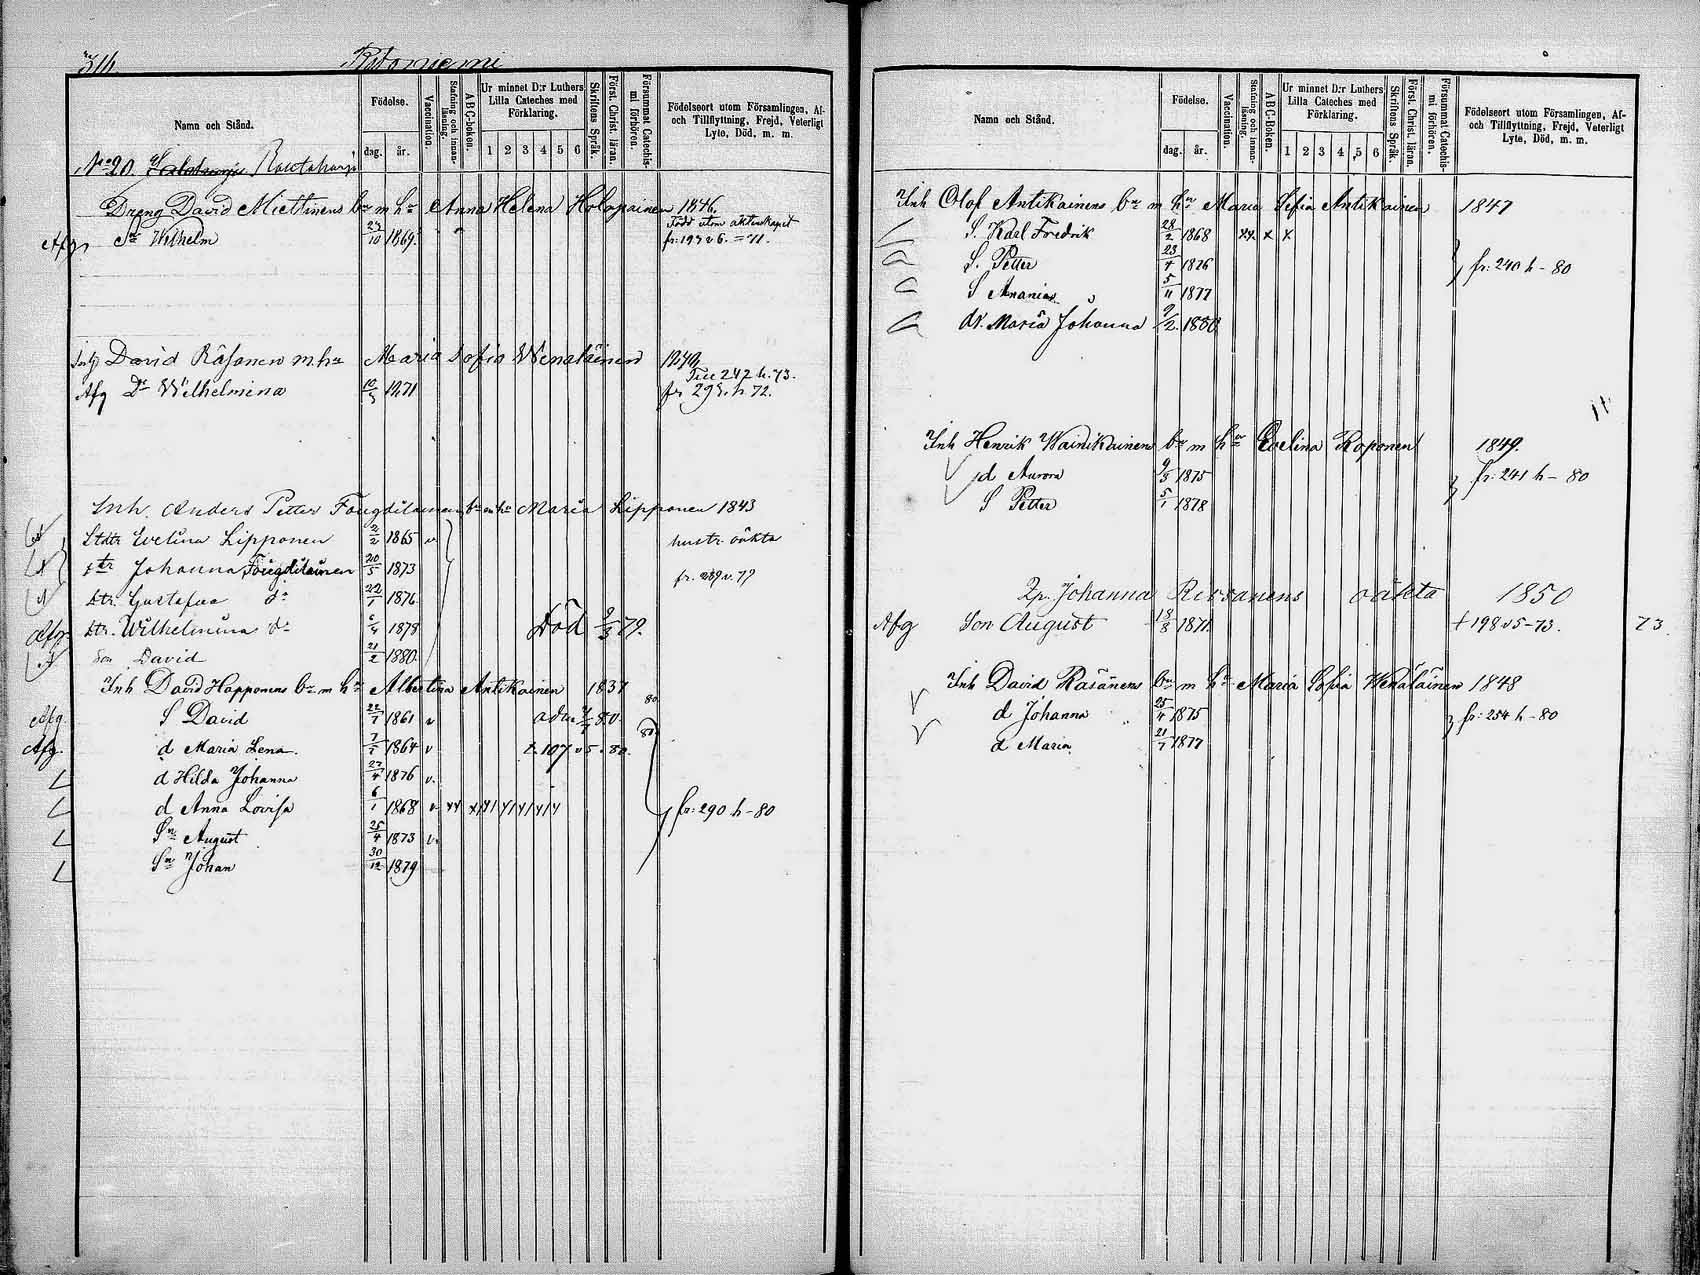 314.
Namn och Stånd.
Födelse.
dag.
år.
Vaccination.
Stafning och innanläsning.
ABC-boken.
Ur minnet D:r Luthers Lilla Cateches med Förklaring.
1 2 3 4 5 6
Skriftens Språk.
Först. Christ. läran.
Försummat Catechismi förhören.
Födelseort utom Församlingen, Af- och Tillflyttning, Frejd, Veterligt Lyte, Död, m. m.
No 20.
Dreng David Miettinens bn m hu Anna Helena Holopainen 1846
Född utom äktenskapet
Afg Sn Wilhelm 27/10 1869
David Räsänen m. hu Maria Sofia Wenäläinen
Till 242 h. 73.
Afg Dr Wilhelmina 1871 fr. 295. h 72.
Inh. Anders Petter Fougdilainens bn m hu Maria Lipponen 1843
Evelina Lipponen 2/2 1865 v hustr. oäkta
dtr Johanna Fougdilainen 20/5 1873
dtr. Gustafva do 22/1 1876 fr. 289 v. 79
Afg dtr. Wilhelmina do 6/4 1878 Död 9/3 79.
Son David 21/2 1880
Inh David Happonens bn m hu Albertina Antikainen 1837
Afg. S David 22/1 1861 v 80.
Afg. d Maria Lena 1864 v t. 107 v 5. 80.
d Hilda Johanna 27/4 1876 v.
d Anna Lovisa 6/1 1868 v fr: 290 h - 80
Sn August 25/4 1873 v.
Sn Johan 30/12 1879
Namn och Stånd.
Födelse.
dag.
år.
Vaccination.
Stafning och innanläsning.
ABC-Boken.
Ur minnet D:r Luthers Lilla Cateches med Förklaring.
1 2 3 4 5 6
Skriftens Språk.
Först. Christ. läran.
Försummat Catechismi förhören.
Födelseort utom Församlingen, Af- och Tillflyttning, Frejd, Veterligt Lyte, Död, m. m.
Inh Olof Antikainens bn m hu Maria Sofia Antikainen 1847
S. Karl Fredrik 28/2 1868 x x
S. Petter 23/4 1876 fr: 240 h - 80
S Ananias 5/11 1877
dr. Maria Johanna 9/2 1880
Inh Henrik Wainikainens bn m hu Evelina Roponen 1849.
d Aurora 9/3 1875 fr: 241 h - 80
S Petter 5/1 1878
Johanna oäkta 1850
Afg Son August 18/8 1871 t 198 v 5 - 73. 73.
Inh David Räsänens bn m hu Maria Sofia Wenäläinen 1848
d Johanna 25/4 1875 fr: 254 h - 80
d Maria 21/1 1877